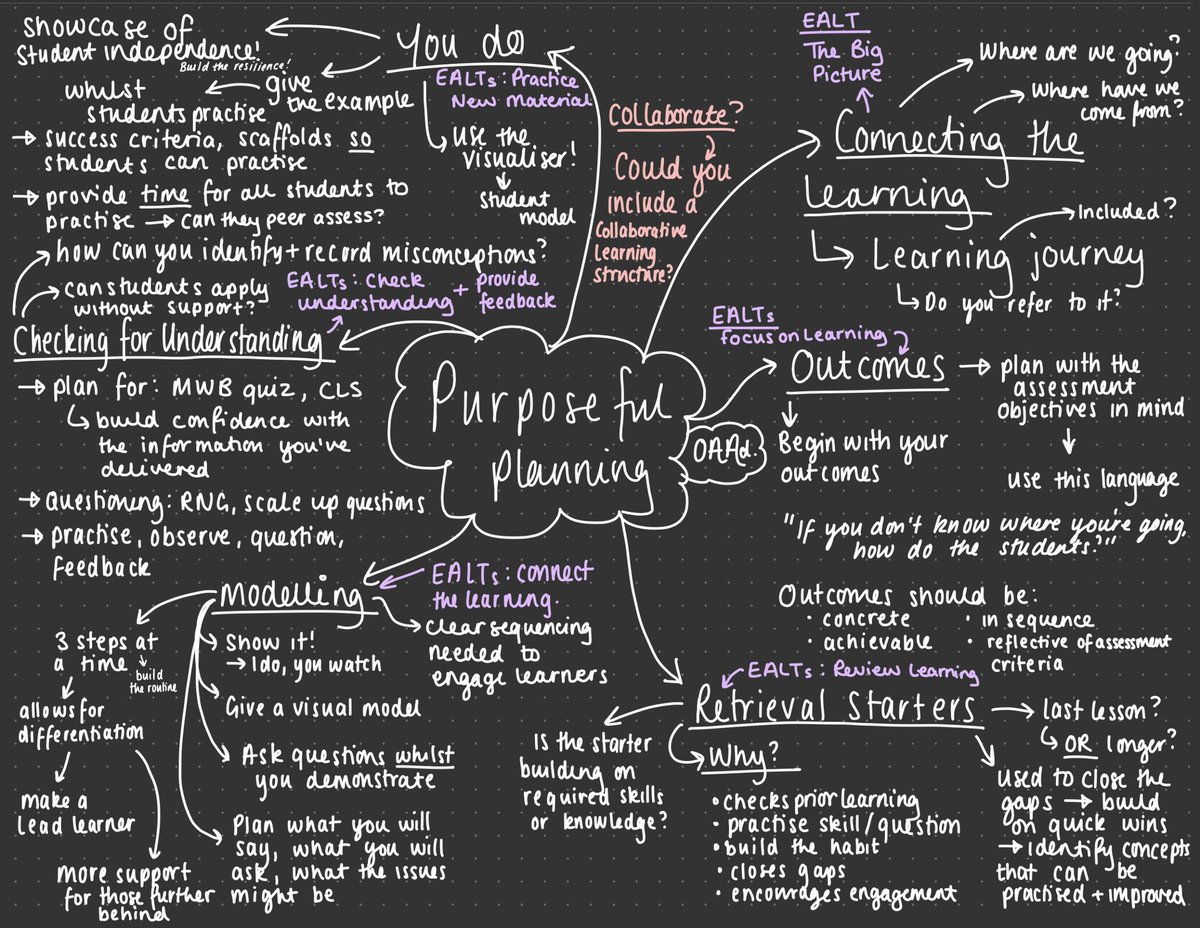 Purposeful
planning
OAAd.
You do
EALTs: Practice
New material
showcase of
student independence!
Build the resilience!
give
the example
whilst
students practise
→ success criteria, scaffolds so
students can practise
→ provide time for all students to
practise → can they peer assess?
use the
visualiser!
student
model
Collaborate?
Could you
include a
Collaborative
Learning
structure?
EALT
The Big
Picture
Connecting the
Learning
Where are we going?
Where have we
come from?
Learning journey
Included?
Do you refer to it?
EALTs
focus on learning
Outcomes
plan with the
assessment
objectives in mind
use this language
Begin with your
outcomes
"If you don't know where you're going,
how do the students?"
Outcomes should be:
· concrete
· achievable
· in sequence
· reflective of assessment
criteria
EALTs: Review Learning
Retrieval Starters
Last lesson?
OR longer?
used to close the
gaps → build
on quick wins
→ identify concepts
that can be
practised + improved
Why?
• checks prior learning
• practise skill/question
• build the habit
• closes gaps
• encourages engagement
Is the starter
building on
required skills
or knowledge?
EALTs: connect
the learning.
Modelling
clear sequencing
needed to
engage learners
3 steps at
a time
build
the routine
allows for
differentiation
make a
Lead learner
more support
for those further
behind
Show it!
→ I do, you watch
Give a visual model
Ask questions whilst
you demonstrate
Plan what you will
say, what you will
ask, what the issues
might be
how can you identify + record misconceptions?
can students apply
without support?
EALTs: Check
understanding + provide
feedback
Checking for Understanding
→ plan for: MWB quiz, CLS
build confidence with
the information you've
delivered
→ Questioning: RNG, scale up questions
→ practise, observe, question,
feedback